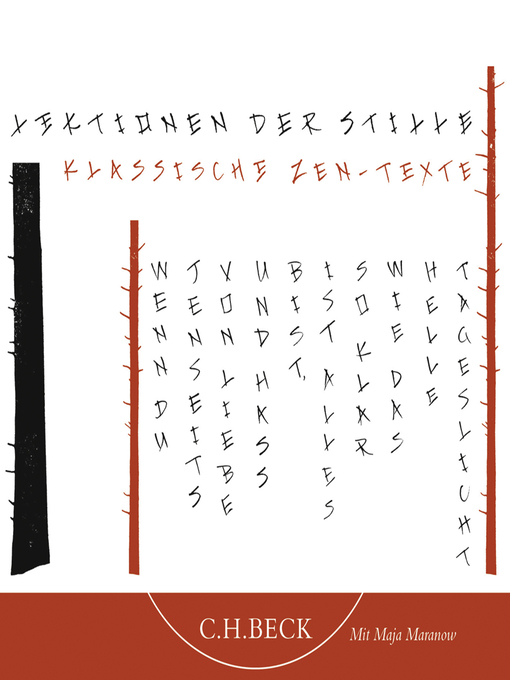 LEKTIONEN DER STILLE
KLASSISCHE ZEN-TEXTE
WENN DU
JENSEITS
VON LIEBE
UND HASS
BIST,
IST ALLES
SO KLAR
WIE DAS
HELLE
TAGESLICHT
C.H.BECK
Mit Maja Maranow